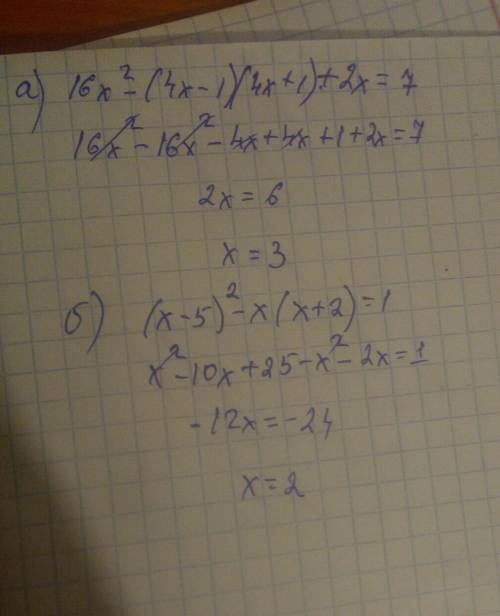 а) 16x² - (4x-1)(4x+1) + 2x = 7
16x² - 16x² - 4x + 4x + 1 + 2x = 7
2x = 6
x = 3
б) (x-5)² - x(x+2) = 1
x² - 10x + 25 - x² - 2x = 1
-12x = -24
x = 2